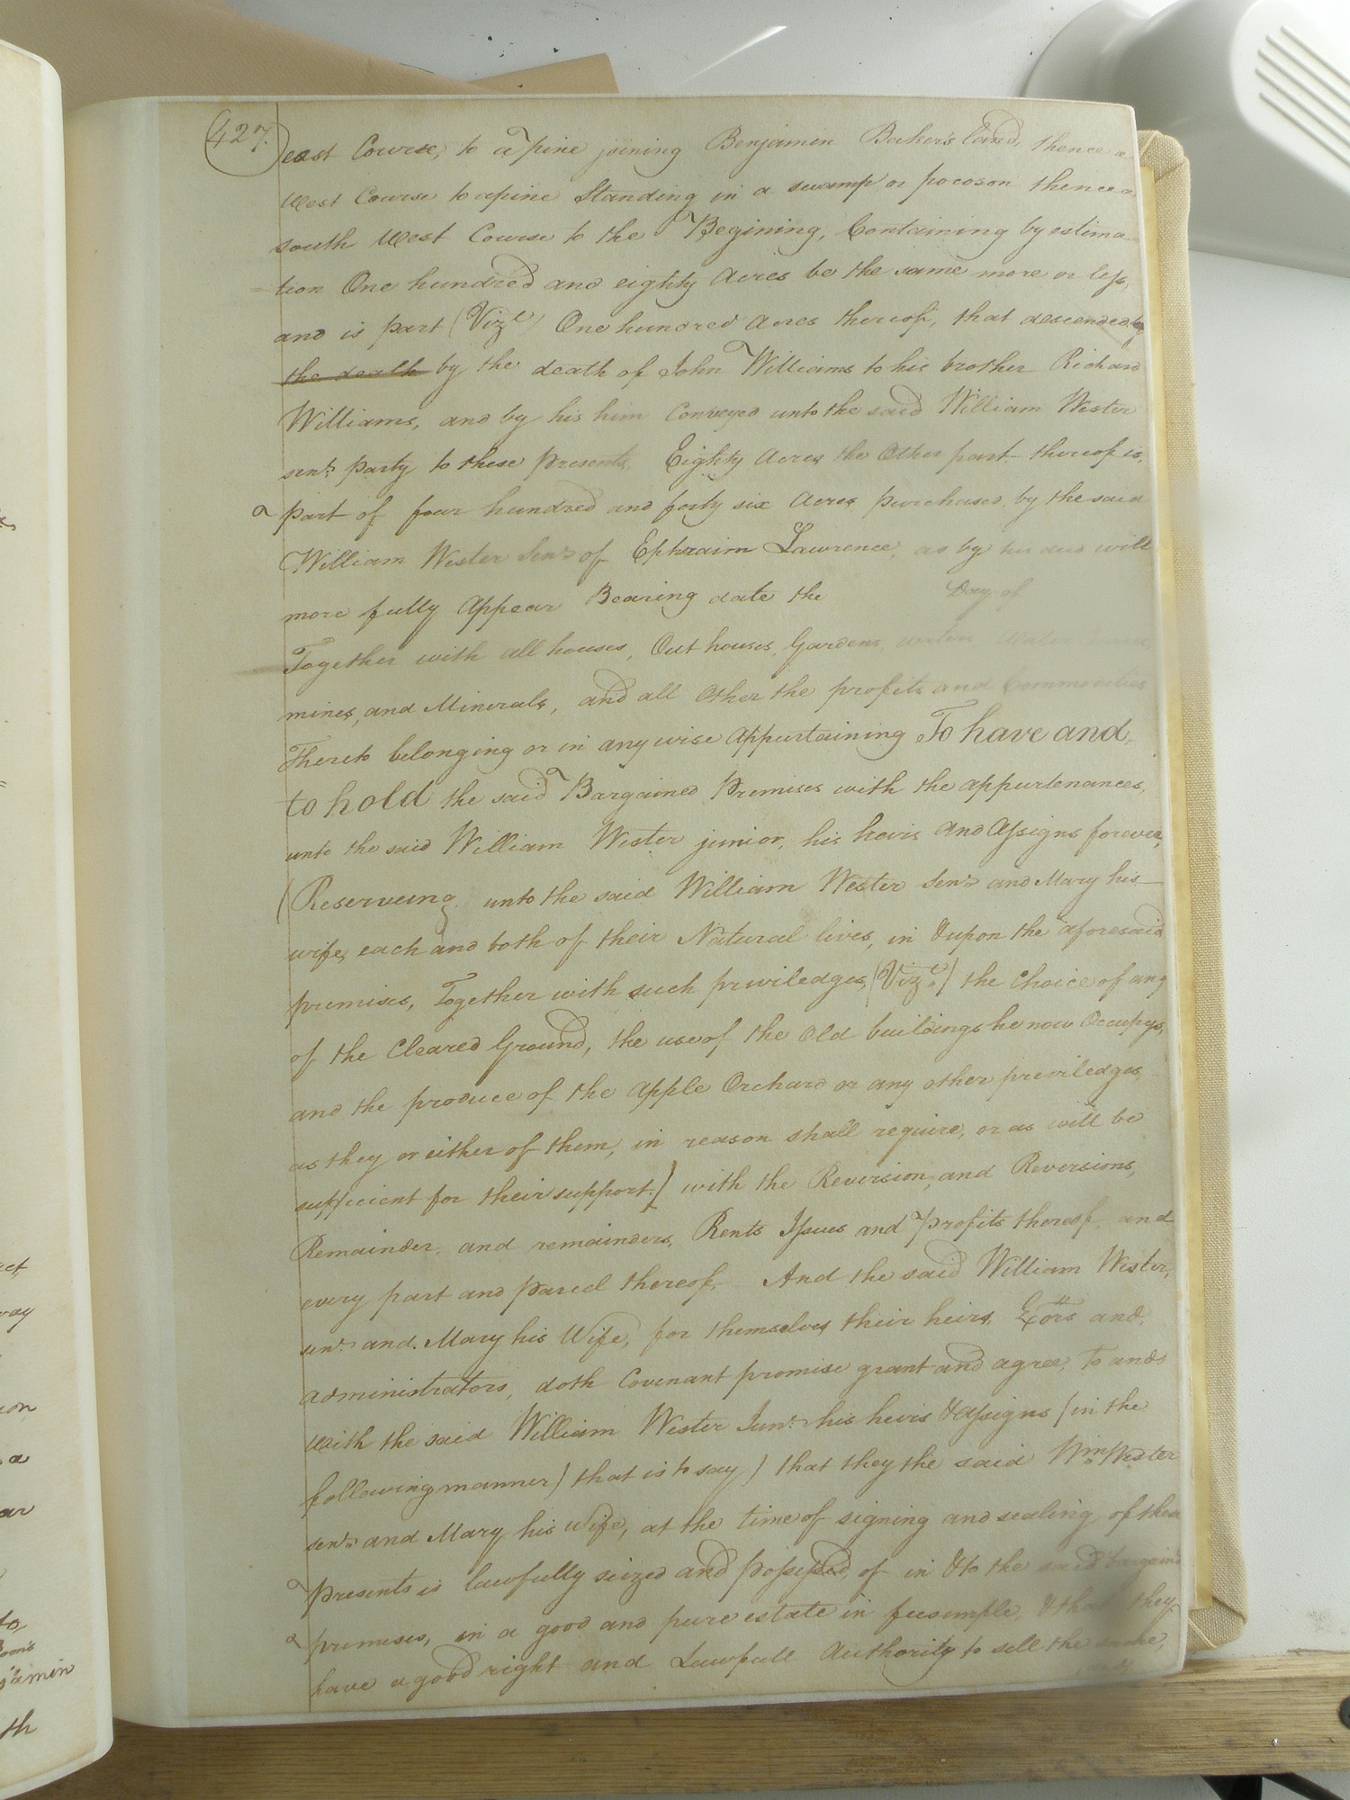 427.
east Course, to a pine joining Benjamin Baker's land, thence a
West Course to a pine Standing in a swamp or pocoson thence a
south West Course to the Begining, Containing by estima
tion One hundred and eighty Acres be the same more or less,
and is part (Vizt) One hundred Acres thereof, that descended by
the death by the death of John Williams to his brother Richard
Williams, and by his him Conveyed unto the said William Wester
senr. party to these Presents, Eighty Acres the Other part thereof is,
a part of four hundred and forty six Acres purchased by the said
William Wester Senr of Ephraim Lawrence, as by his deed will
more fully Appear Bearing date the Day of
Together with all houses, Out houses, Gardens, Water
mines, and Minerals, and all Other the profits and Commodities
Thereto belonging or in any wise Appurtaining To have and
to hold the said Bargained Premises with the appurtenances,
unto the said William Wester junior, his heirs and Assigns forever,
(Reserveing unto the said William Wester Senr and Mary his
wife, each and both of their Natural lives, in & upon the aforesaid
premises, Together with such priviledges, (Vizt.) the Choice of any
of the Cleared Ground, the use of the Old buildings he now Occupys,
and the produce of the Apple Orchard or any other priviledges,
as they or either of them, in reason shall require, or as will be
sufficient for their support.) with the Reversion, and Reversions,
Remainder, and remainders, Rents Issues and Profits thereof, and
every part and Parcel thereof, And the said William Wester,
senr. and Mary his Wife, for themselves their heirs, Exors and
administrators, doth Covenant promise grant and agree, to and
With the said William Wester Junr. his heirs & Assigns (in the
following manner) that is to say) that they the said Wm Wester
senr and Mary his Wife, at the time of signing and sealing of these
Presents is lawfully seized and possessed, of in & to the said bargain'd
premises, in a good and pure estate in feesimple, & that they
have a good right and Lawfull Authority to sell the same,